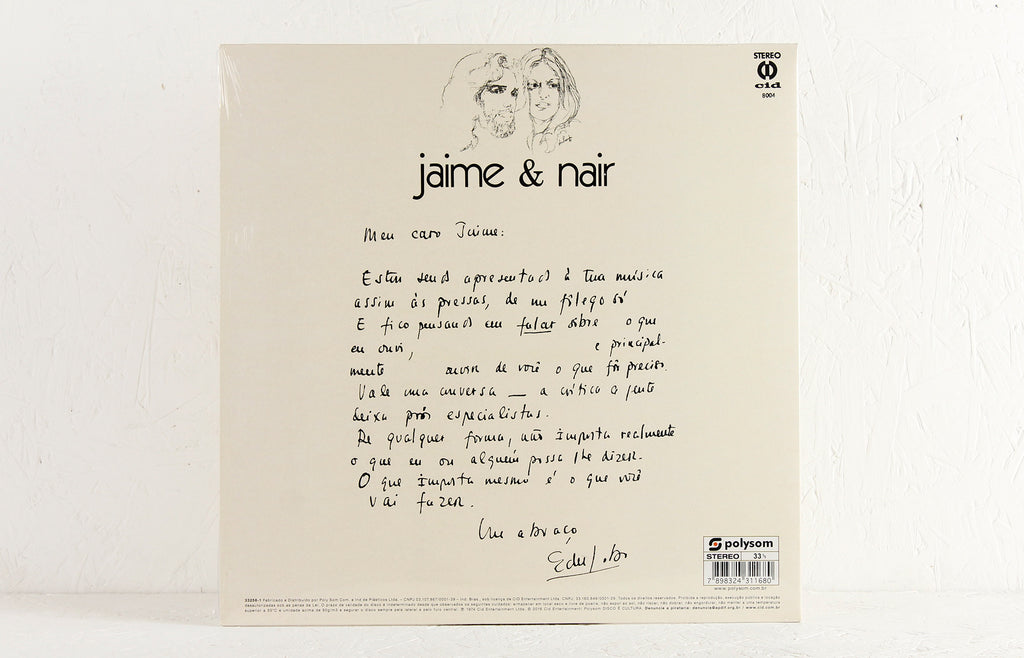 STEREO
cid
8004
jaime & nair
Meu caro Jaime:
Estou sendo apresentado à tua música
assim às pressas, de um fôlego só
E fico pensando em falar sobre o que
eu ouvi, e principal-
mente ouvir de você o que fôr preciso.
Vale uma conversa — a crítica a gente
deixa prós especialistas.
De qualquer forma, não importa realmente
o que eu ou alguém possa lhe dizer.
O que importa mesmo é o que você
vai fazer.
Um abraço
Edu Lobo
polysom
STEREO 33⅓
7 898324 311680
www.polysom.com.br